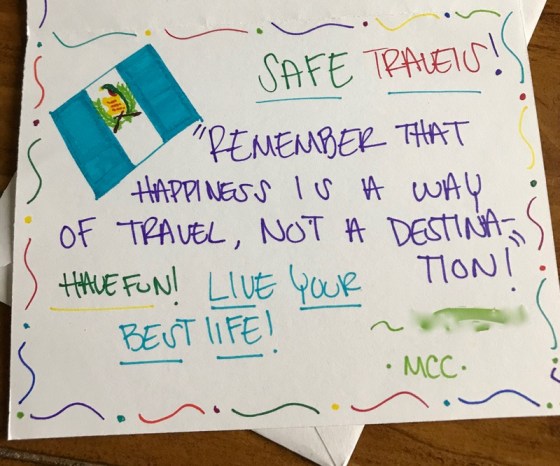 SAFE TRAVELS!
"REMEMBER THAT
HAPPINESS IS A WAY
OF TRAVEL, NOT A DESTINA-
TION!"
HAVE FUN! LIVE YOUR
BEST LIFE!
~
· MCC ·